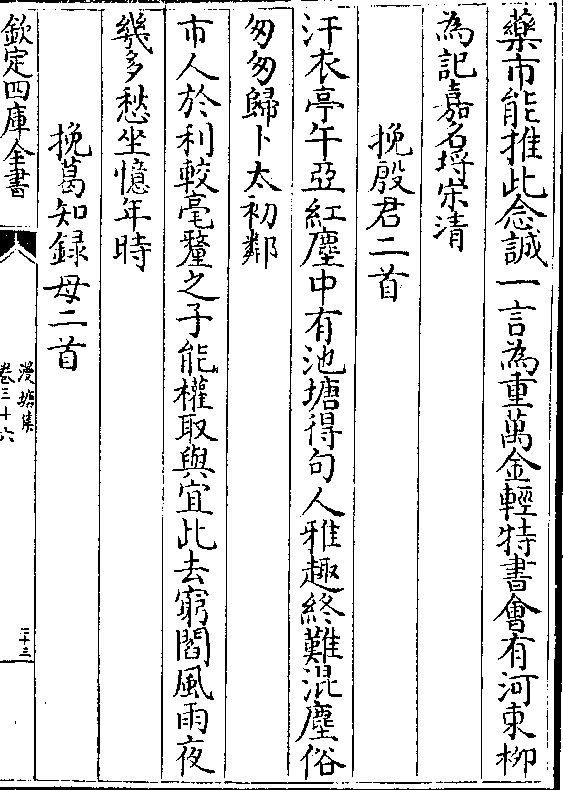 藥市能推此念誠一言為重萬金輕特書會有河東柳
為記嘉名埒宋清
挽殷君二首
汗衣亭午亞紅塵中有池塘得句人雅趣終難混塵俗
匆匆歸卜太初鄰
市人於利較毫釐之子能權取與宜此去窮閻風雨夜
幾多愁坐憶年時
挽葛知録母二首
欽定四庫全書
漫塘集
卷三十六
二十三